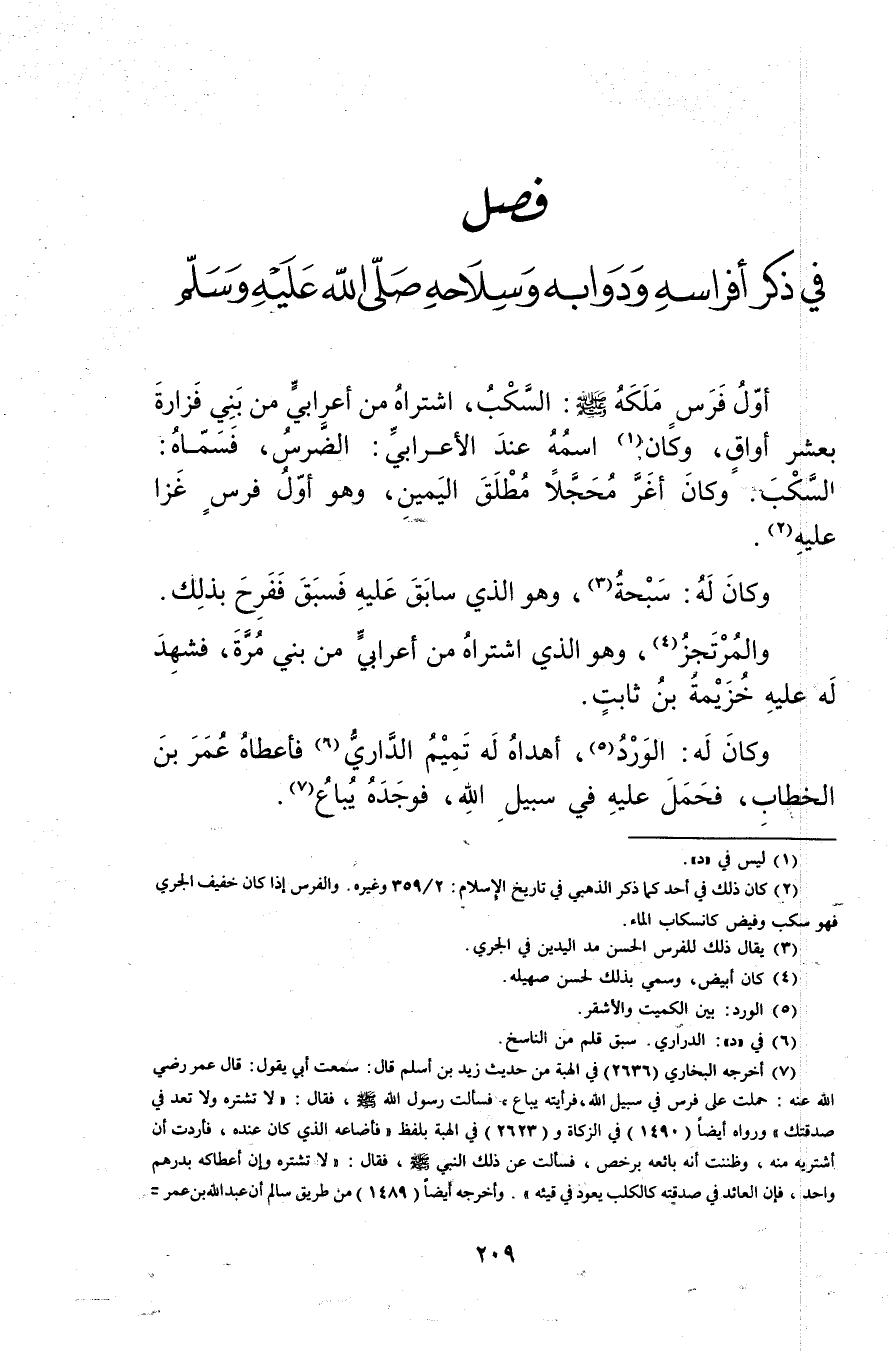 فصل
في ذكر أفراسه ودوابه وسلاحه صلى الله عليه وسلم
أوّلُ فَرَسٍ مَلَكَهُ ﷺ: السَّكْبُ، اشتراهُ من أعرابيٍّ من بَنِي فَزارةَ
بعشر أواقٍ، وكان(١) اسمُهُ عندَ الأعرابيِّ: الضَّرسُ، فَسَمّاهُ:
السَّكْبَ. وكانَ أغَرَّ مُحَجَّلاً مُطْلَقَ اليَمينِ، وهو أوّلُ فرسٍ غَزا
عليهِ(٢).
وكانَ لَهُ: سَبْحةُ(٣)، وهو الذي سابَقَ عَليهِ فَسبَقَ فَفَرِحَ بذلِك.
والمُرْتَجزُ(٤)، وهو الذي اشتراهُ من أعرابيٍّ من بني مُرَّةَ، فشهِدَ
لَه عليهِ خُزَيْمةُ بنُ ثابتٍ.
وكانَ لَه: الوَرْدُ(٥)، أهداهُ لَه تَمِيْمُ الدَّاريُّ(٦) فأعطاهُ عُمَرَ بنَ
الخطابِ، فحَمَلَ عليهِ في سبيلِ اللهِ، فوجَدَهُ يُباعُ(٧).
(١) ليس في «د».
(٢) كان ذلك في أحد كما ذكر الذهبي في تاريخ الإسلام: ٣٥٩/٢ وغيره. والفرس إذا كان خفيف الجري
فهو سكب وفيض كانسكاب الماء.
(٣) يقال ذلك للفرس الحسن مد اليدين في الجري.
(٤) كان أبيض، وسمي بذلك لحسن صهيله.
(٥) الورد: بين الكميت والأشقر.
(٦) في «د»: الدراري. سبق قلم من الناسخ.
(٧) أخرجه البخاري (٢٦٣٦) في الهبة من حديث زيد بن أسلم قال: سمعت أبي يقول: قال عمر رضي
الله عنه: حملت على فرس في سبيل الله، فرأيته يباع، فسألت رسول الله ﷺ، فقال: «لا تشتره ولا تعد في
صدقتك» ورواه أيضاً (١٤٩٠) في الزكاة و (٢٦٢٣) في الهبة بلفظ «فأضاعه الذي كان عنده، فأردت أن
أشتريه منه، وظننت أنه بائعه برخص، فسألت عن ذلك النبي ﷺ، فقال: «لا تشتره وإن أعطاكه بدرهم
واحد، فإن العائد في صدقته كالكلب يعود في قيئه». وأخرجه أيضاً (١٤٨٩) من طريق سالم أن عبدالله بن عمر =
٢٠٩